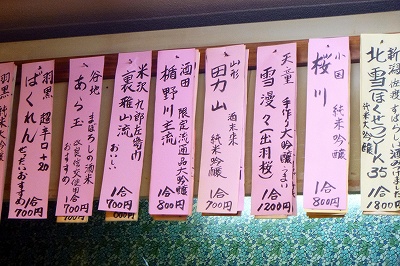 新潟 佐渡
北雪(ほくせつ)YK35
純米大吟醸
1合
1800円
小国
桜川
純米吟醸
1合
800円
天童
雪漫々(出羽桜)
手作り大吟醸
うまい
1合
1200円
山形
田力山
酒未来
純米吟醸
1合
700円
酒田
楯野川主流
限定流通品大吟醸
1合
800円
米沢 九郎左衛門
裏雅山流
おいしい
1合
700円
谷地
あら玉
まぼろしの酒米
改良信交使用
おすすめ
1合
700円
羽黒
ばくれん
超辛口+20
ぜったいおすすめ
1合
700円
羽黒
純米大吟醸